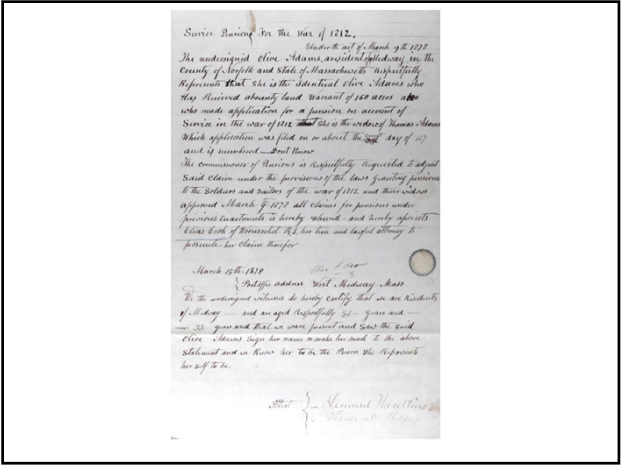 Service Pensions For the War of 1812.
Under the act of March 9th 1878
The undersignid Olive Adams, a resident of Medway, in the
County of Norfolk and State of Massachusetts Respectfully
Represents that She is the identical Olive Adams who
Has Received a bounty land Warant of 160 acres also
who made application for a pension on account of
Service in the war of 1812 that She is the widow of Thomas Adams
Which application was filed on or about the day of 187
and is numbered — Dont Know
The commissioner of Pensions is Respectfully Requested to adjust
Said Claim under the provisions of the laws Granting pensions
to the Soldiers and Sailors of the war of 1812 and their widows
approved March 9th 1878 all claims for pensions under
previous Enactments is hereby and hereby apoints
Elias Cook of Woonsocket R.I. her true and lawful attorney to
prosecute her Claim therefor
March 15th 1878
Post office address West Medway Mass
We the undersigned witnesses do hereby certify that we are Residents
of Medway — and are aged Respectfully years and —
— years and that we ware present and Saw the Said
Olive Adams Sign her name or make her mark to the above
Statement and we Know her to be the Person She Represents
her self to be.
Attest